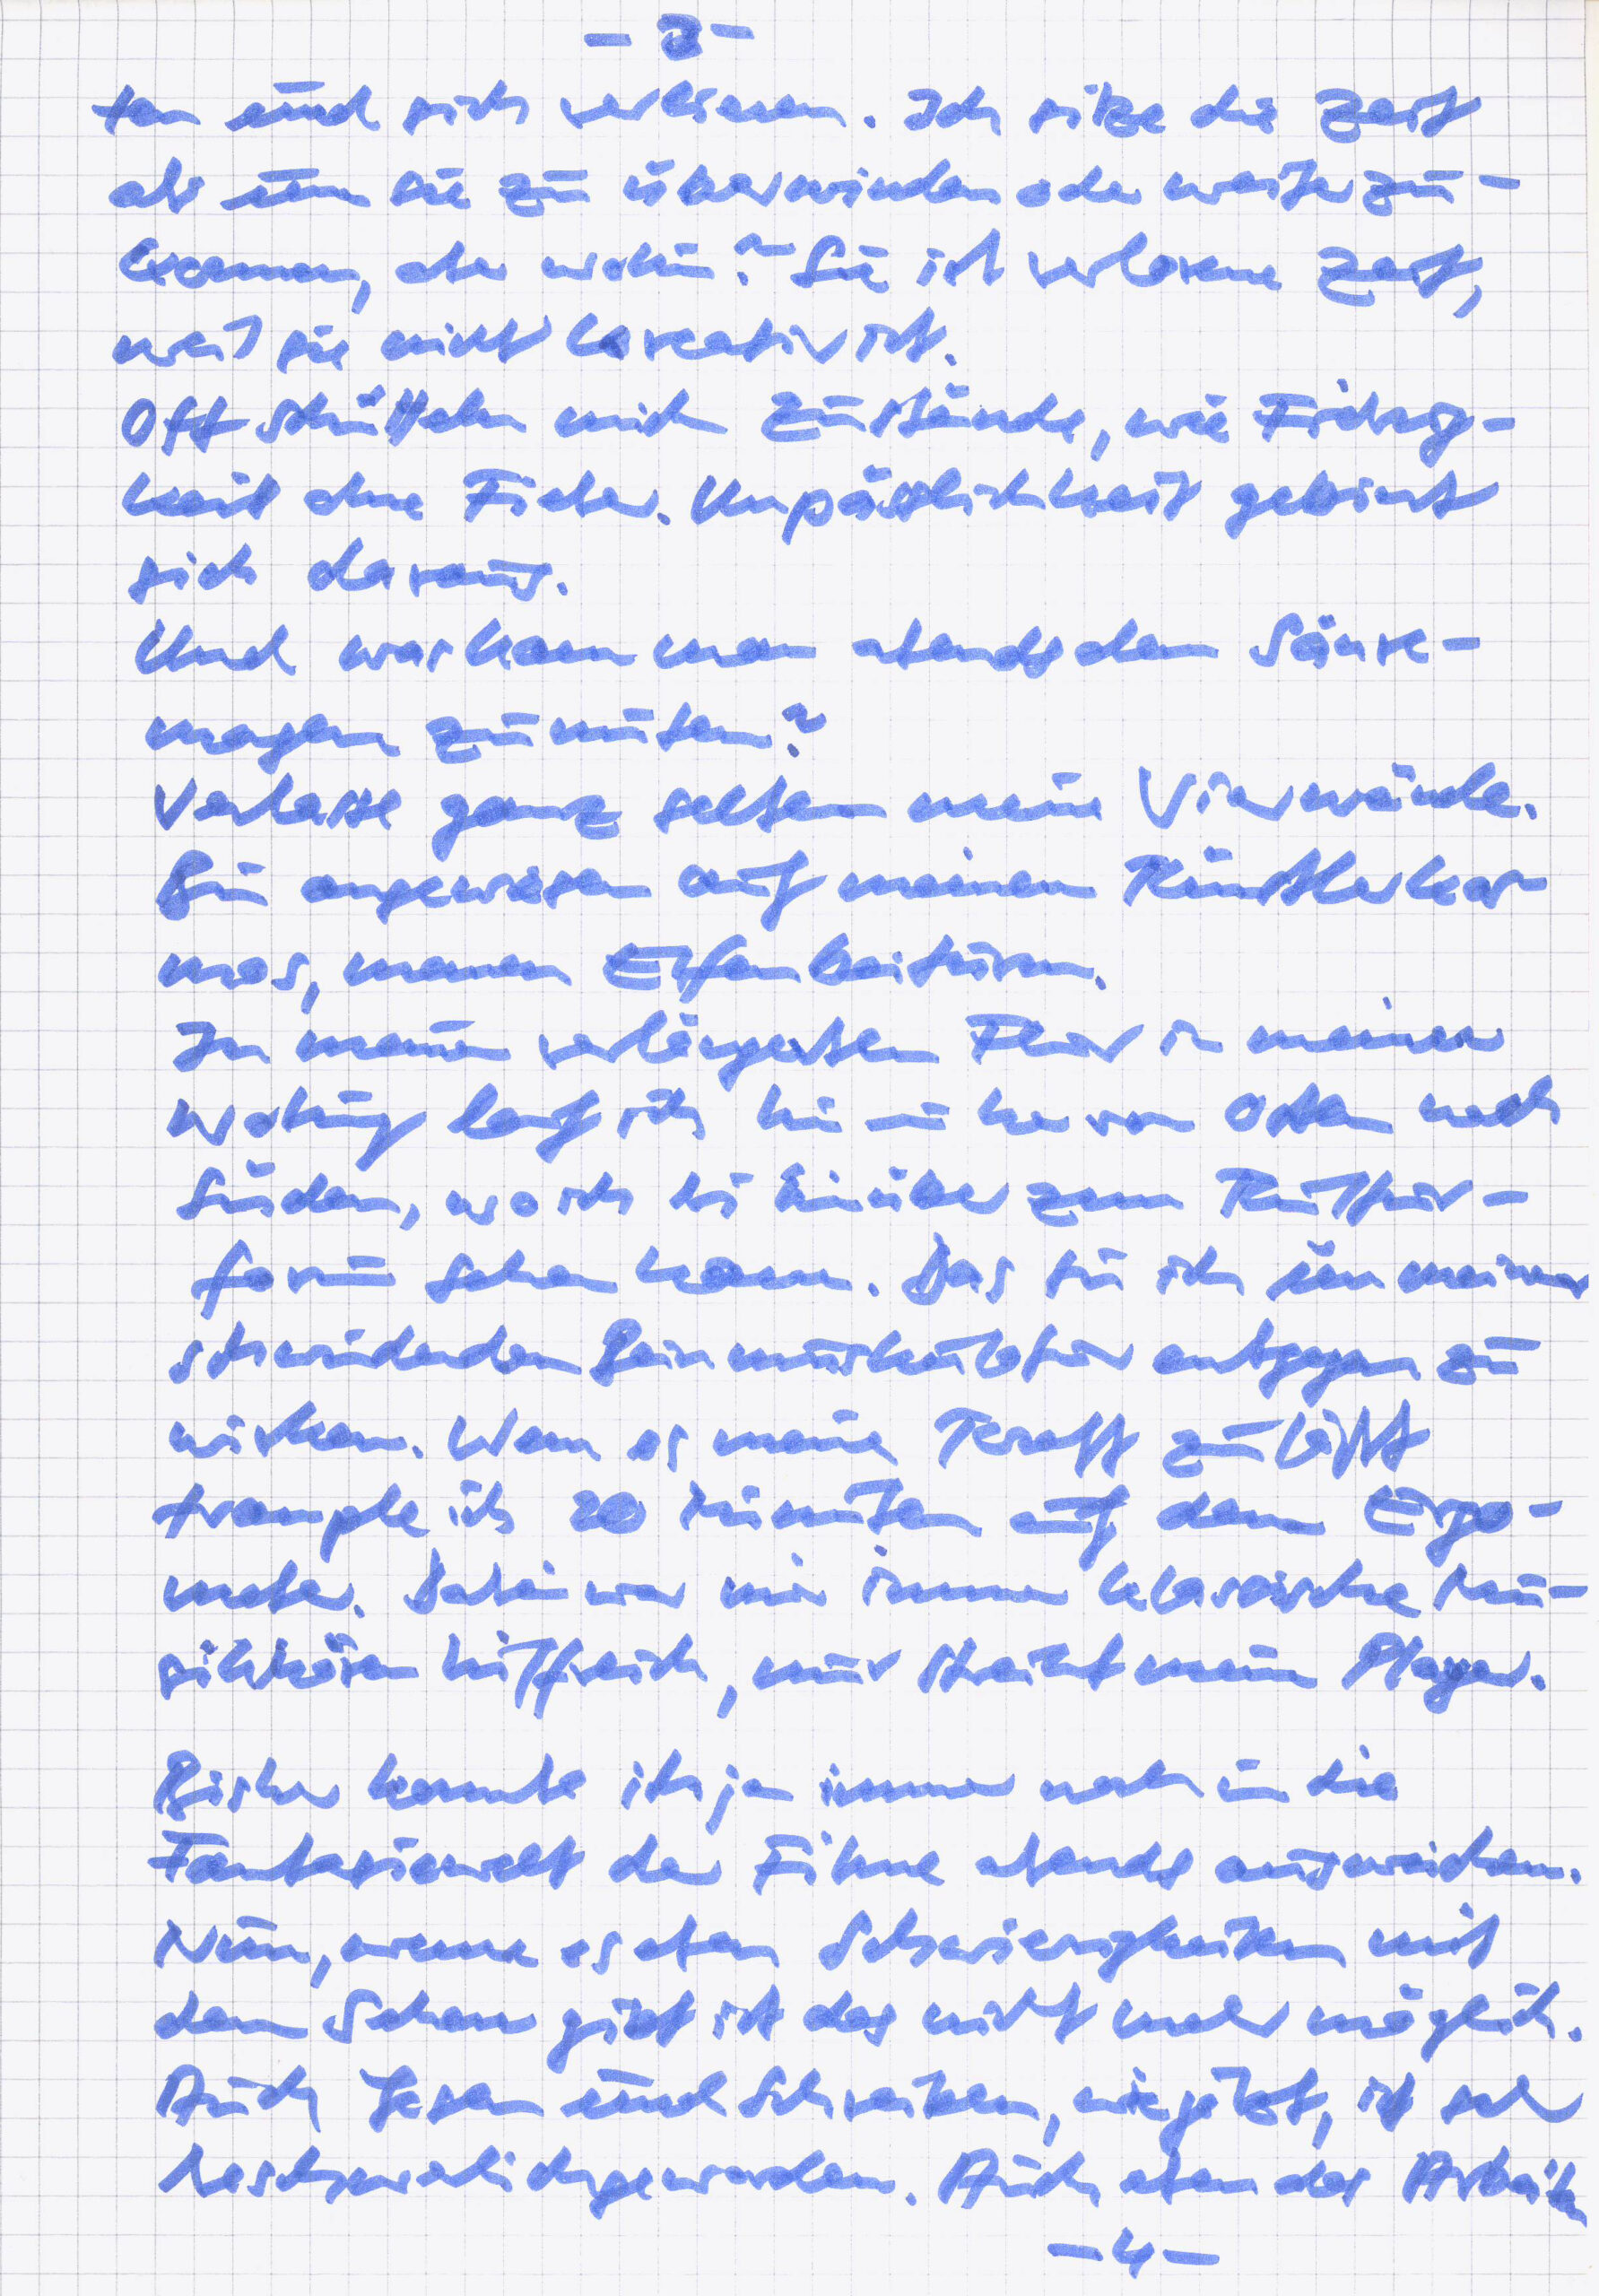 - 3 -
ten und sich verlieren. Ich sitze die Zeit
ab um sie zu überwinden oder weiterzu-
kommen, aber wohin? Sie ist verlorene Zeit,
weil sie nicht kreativ ist.
Oft schütteln mich Zustände, wie Fiebrig-
keit ohne Fieber. Unpässlichkeit gebiert
sich daraus.
Und was kann man abends dem Säure-
magen zumuten?
Verlasse ganz selten meine Vierwände.
Bin angewiesen auf meinen Künstlerkos-
mos, meinen Elfenbeinturm.
In meinem verlängerten Flur in meiner
Wohnung lauf ich hin u her von Osten nach
Süden, wo ich bis hinüber zum Kultur-
forum sehen kann. Das tu ich um meiner
schwindenden Beinmuskulatur entgegen zu
wirken. Wenn es meine Kraft zuläßt
trample ich 20 Minuten auf dem Ergo-
meter. Dabei war mir immer klassische Mu-
sikhören hilfreich, nur streikt mein Player.
Bisher konnte ich ja immer noch in die
Fantasiewelt der Filme abends ausweichen.
Nun, wenn es eben Schwierigkeiten mit
dem Sehen gibt ist das nicht mehr möglich.
Auch Lesen und Schreiben, wie jetzt, ist sehr
beschwerlich geworden. Auch eben das Arbeiten
- 4 -